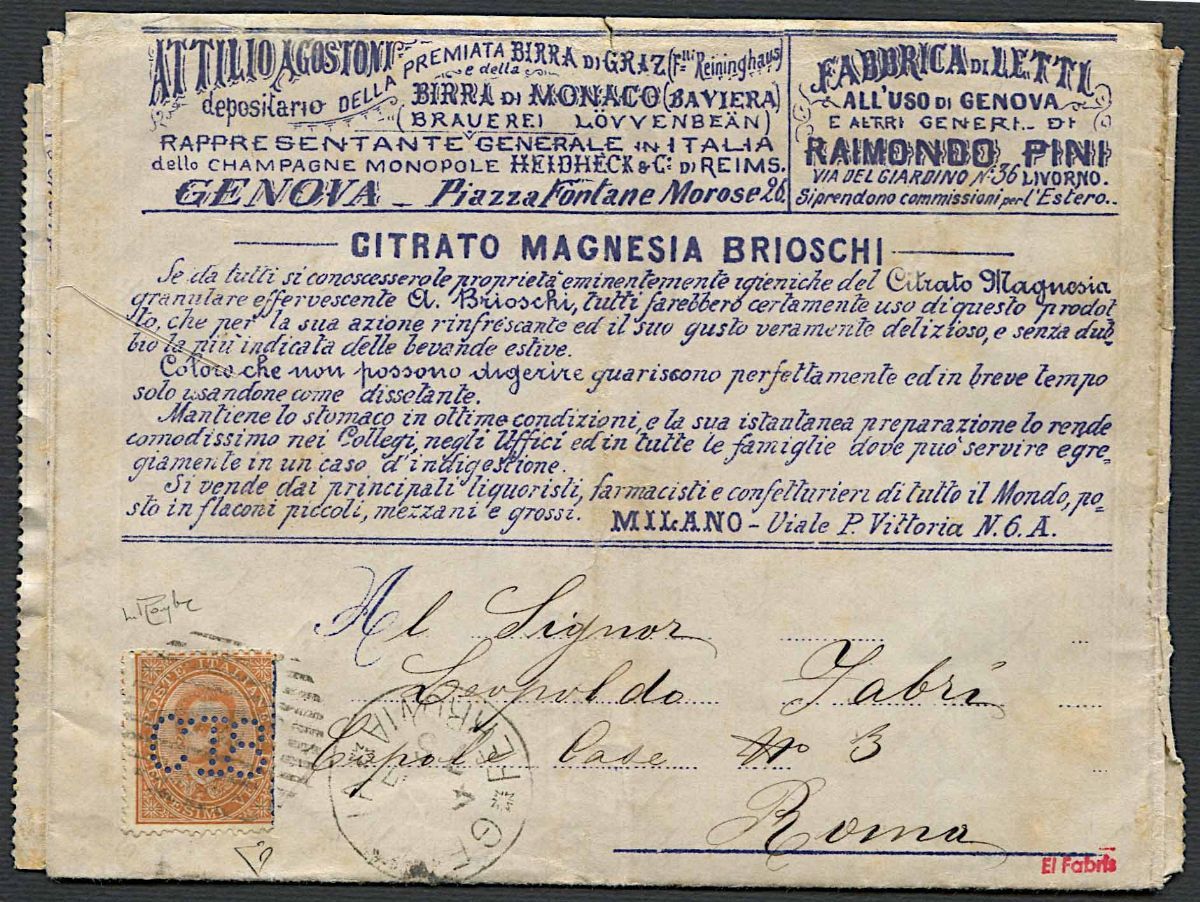 ATTILIO AGOSTONI
depositario DELLA PREMIATA BIRRA DI GRAZ (F.lli Reininghaus)
e della
BIRRA DI MONACO (BAVIERA)
(BRAUEREI LÖVVENBEÄN)
RAPPRESENTANTE GENERALE IN ITALIA
dello CHAMPAGNE MONOPOLE HEIDHECK & C.i DI REIMS.
GENOVA _ Piazza Fontane Morose 26.
FABBRICA DI LETTI
ALL'USO DI GENOVA
E ALTRI GENERI.. DI
RAIMONDO PINI
VIA DEL GIARDINO N.º 36 LIVORNO.
Si prendono commissioni per l'Estero..
CITRATO MAGNESIA BRIOSCHI
Se da tutti si conoscessero le proprietà eminentemente igieniche del Citrato Magnesia
granulare effervescente A. Brioschi, tutti farebbero certamente uso di questo prodot
to, che per la sua azione rinfrescante ed il suo gusto veramente delizioso, e senza dub-
bio la più indicata delle bevande estive.
Coloro che non possono digerire guariscono perfettamente ed in breve tempo
solo usandone come dissetante.
Mantiene lo stomaco in ottime condizioni, e la sua istantanea preparazione lo rende
comodissimo nei Collegi, negli Uffici ed in tutte le famiglie dove può servire egre-
giamente in un caso d'indigestione.
Si vende dai principali liquoristi, farmacisti e confetturieri di tutto il Mondo, po-
sto in flaconi piccoli, mezzani e grossi. MILANO - Viale P. Vittoria N. 6. A.
Al Signor
Leopoldo Fabri
Capo le Case Nº 3
Roma
POSTE ITALIANE
FERROVIA
El Fabris